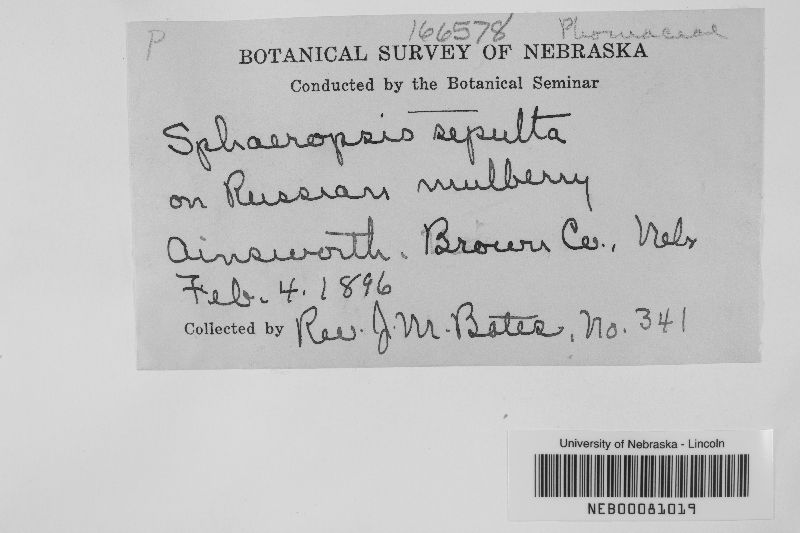 P 166578 Phomaceae
BOTANICAL SURVEY OF NEBRASKA
Conducted by the Botanical Seminar
Sphaeropsis sepulta
on Russian mulberry
Ainsworth. Brown Co., Neb.
Feb. 4. 1896
Collected by Rev. J. M. Bates, No. 341
University of Nebraska - Lincoln
NEB00081019